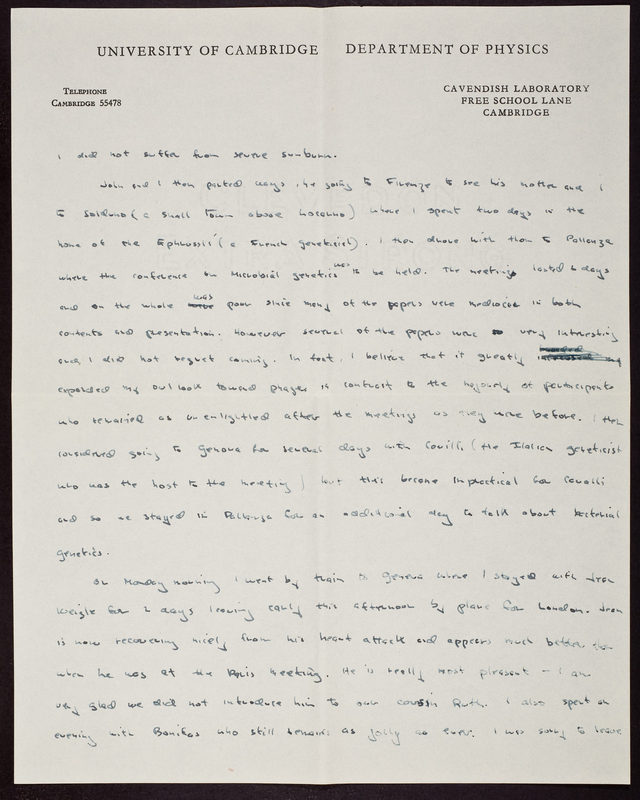 UNIVERSITY OF CAMBRIDGE DEPARTMENT OF PHYSICS
TELEPHONE
CAMBRIDGE 55478
CAVENDISH LABORATORY
FREE SCHOOL LANE
CAMBRIDGE
I did not suffer from severe sunburn.
John and I then parted ways, he going to Firenze to see his mother and I
to Solduno (a small town above Locarno) where I spent two days in the
home of the Ephrussis' (a French geneticist). I then drove with them to Pallanza
where the conference on Microbial genetics was to be held. The meetings lasted 2 days
and on the whole was poor since many of the papers were mediocre in both
contents and presentation. However several of the papers were very interesting
and I did not regret coming. In fact, I believe that it greatly
expanded my outlook toward phages in contrast to the majority of participants
who remained as unenlightled after the meetings as they were before. I then
considered going to Genova for several days with Cavilli (the Italian geneticist
who was the host to the meeting) but this became impractical for Cavalli
and so we stayed in Pallanza for an additional day to talk about bacterial
genetics.
On Monday morning I went by train to Geneva where I stayed with Jean
Weigle for 2 days leaving early this afternoon by plane for London. Jean
is now recovering nicely from his heart attack and appears much better than
when he was at the Paris meeting. He is really most pleasant - I am
very glad we did not introduce him to our cousin Ruth. I also spent an
evening with Bonifas who still remains as jolly as ever. I was sorry to leave